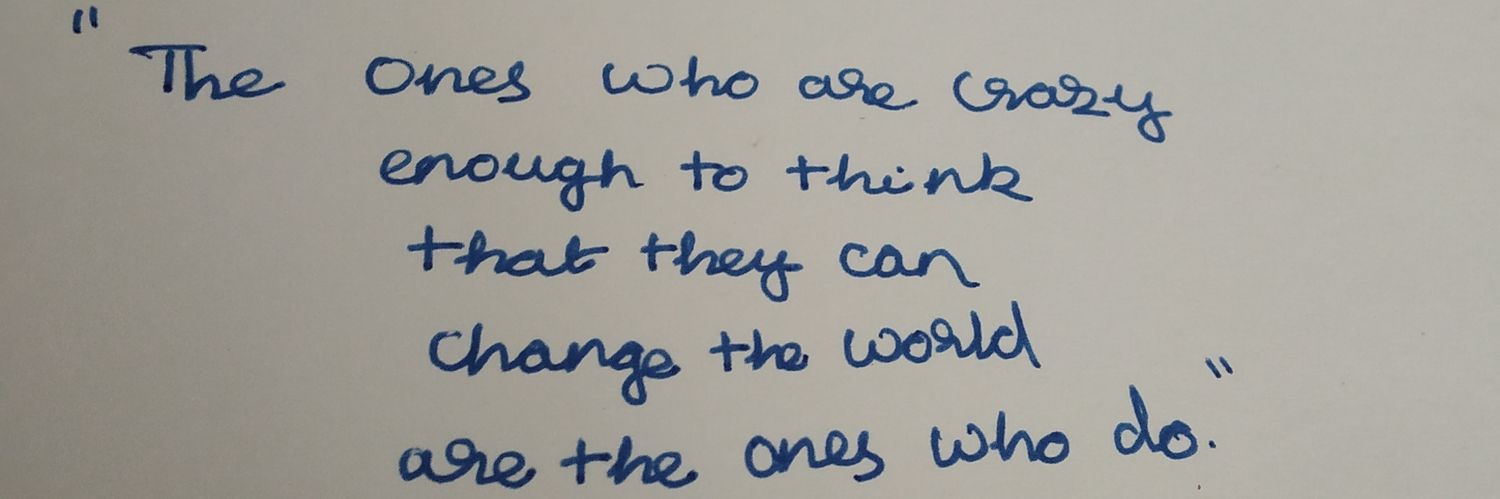 "The ones who are crazy
enough to think
that they can
change the world
are the ones who do."